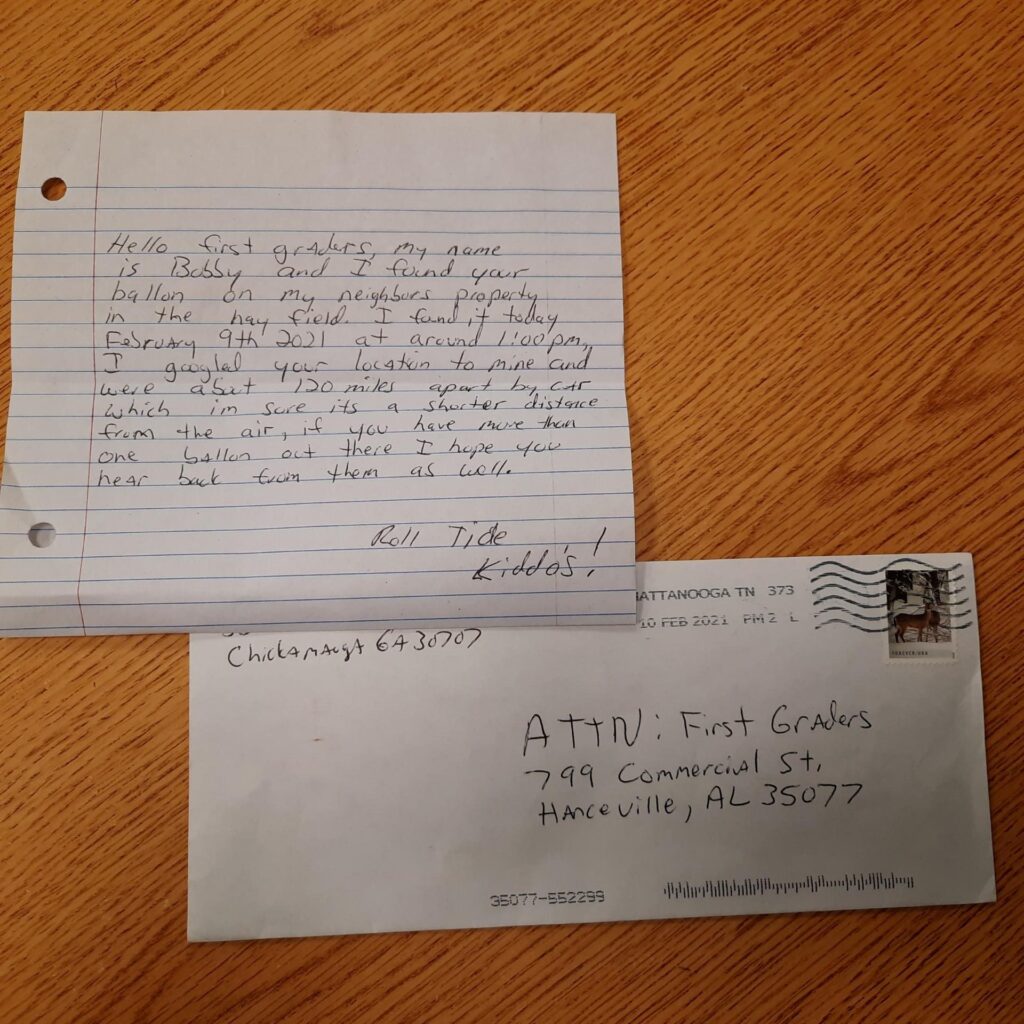 Hello first graders, my name
is Bobby and I found your
ballon on my neighbors property
in the hay field. I found it today
February 9th 2021 at around 1:00pm,
I googled your location to mine and
were about 120 miles apart by car
which im sure its a shorter distance
from the air, if you have more than
one ballon out there I hope you
hear back from them as well.
Roll Tide
Kiddo's!
Chickamauga GA 30707
ATTANOOGA TN 373
10 FEB 2021 PM 2 L
FOREVER/USA
ATTN: First Graders
799 Commercial St,
Hanceville, AL 35077
35077-552299